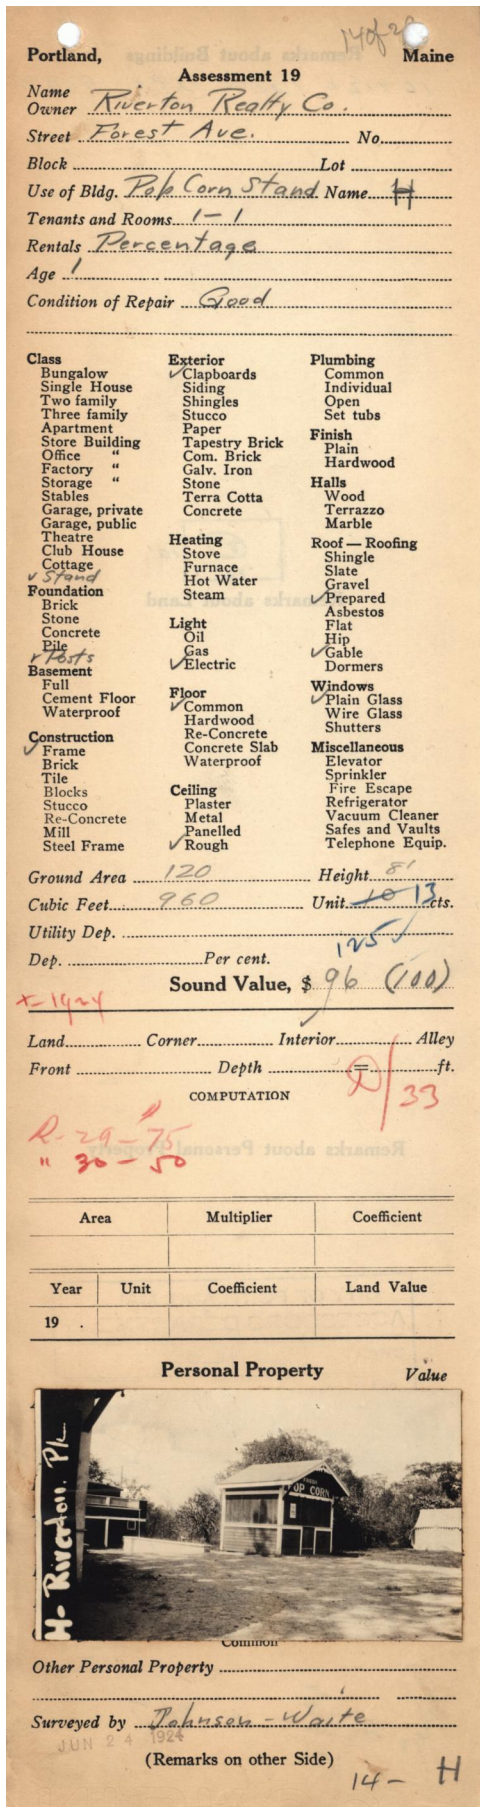 14 of 29
Portland, Maine
Assessment 19
Name
Owner Riverton Realty Co.
Street Forest Ave. No.
Block Lot
Use of Bldg. Pop Corn Stand Name H
Tenants and Rooms 1-1
Rentals Percentage
Age 1
Condition of Repair Good
Class
Bungalow
Single House
Two family
Three family
Apartment
Store Building
Office "
Factory "
Storage "
Stables
Garage, private
Garage, public
Theatre
Club House
Cottage
✓ Stand
Foundation
Brick
Stone
Concrete
Pile
✓ Posts
Basement
Full
Cement Floor
Waterproof
Construction
✓ Frame
Brick
Tile
Blocks
Stucco
Re-Concrete
Mill
Steel Frame
Exterior
✓ Clapboards
Siding
Shingles
Stucco
Paper
Tapestry Brick
Com. Brick
Galv. Iron
Stone
Terra Cotta
Concrete
Heating
Stove
Furnace
Hot Water
Steam
Light
Oil
Gas
✓ Electric
Floor
✓ Common
Hardwood
Re-Concrete
Concrete Slab
Waterproof
Ceiling
Plaster
Metal
Panelled
✓ Rough
Plumbing
Common
Individual
Open
Set tubs
Finish
Plain
Hardwood
Halls
Wood
Terrazzo
Marble
Roof — Roofing
Shingle
Slate
Gravel
✓ Prepared
Asbestos
Flat
Hip
✓ Gable
Dormers
Windows
✓ Plain Glass
Wire Glass
Shutters
Miscellaneous
Elevator
Sprinkler
Fire Escape
Refrigerator
Vacuum Cleaner
Safes and Vaults
Telephone Equip.
Ground Area 120 Height 8'
Cubic Feet 960 Unit 10 13 cts.
Utility Dep. 125 ✓
Dep. Per cent.
Sound Value, $ 96 (100)
x-1924
Land Corner Interior Alley
Front Depth = ft.
D/33
COMPUTATION
R-29-75
" 30-50
Area Multiplier Coefficient
Year Unit Coefficient Land Value
19 .
Personal Property Value
H- Riverton. Pk.
POP CORN
Common
Other Personal Property
Surveyed by Johnson-Waite
JUN 24 1924
(Remarks on other Side)
14- H